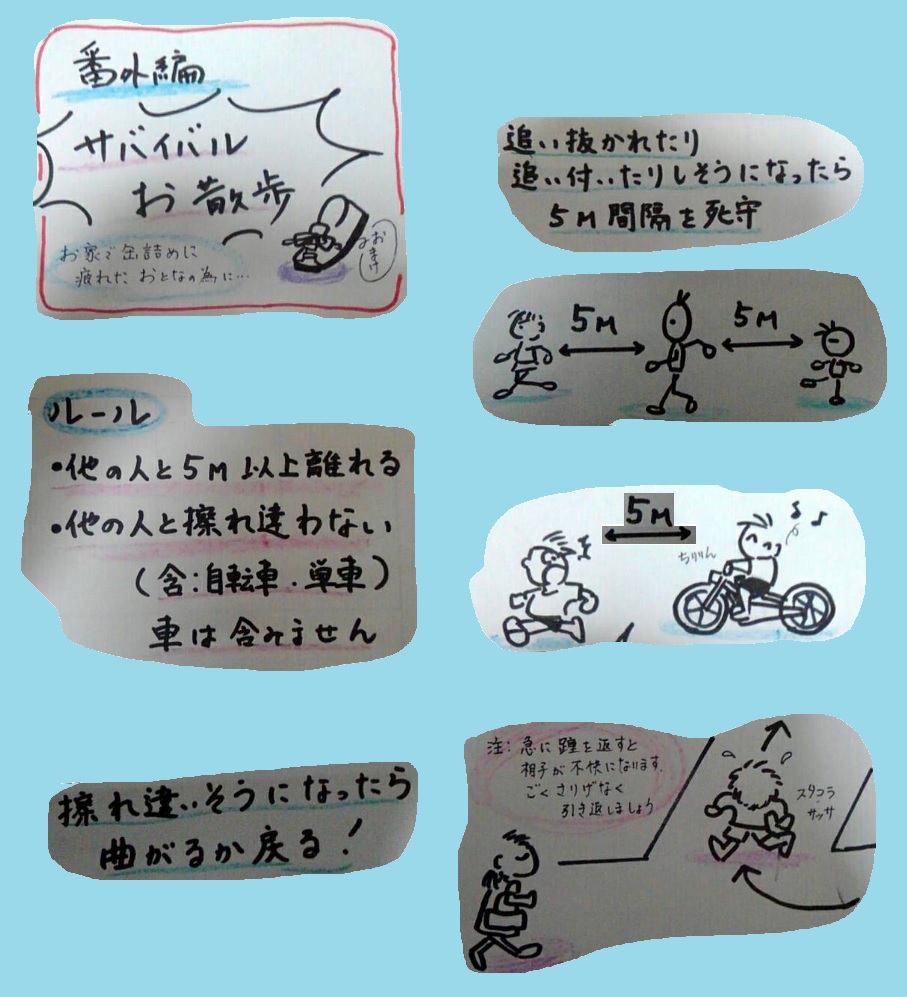 番外編
サバイバル
お散歩
お家で缶詰めに
疲れた おとなの為に…
おまけ
ルール
・他の人と5M以上離れる
・他の人と擦れ違わない
(含:自転車・単車)
車は含みません
擦れ違いそうになったら
曲がるか戻る!
追い抜かれたり
追い付いたりしそうになったら
5M間隔を死守
5M
5M
5M
ちりりん
注:急に踵を返すと
相手が不快になります。
ごくさりげなく
引き返しましょう
スタコラ
サッサ